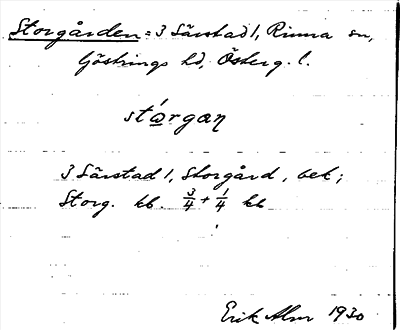 Storgården = 3 Särstad 1, Rinna sn,
Göstrings hd, Österg. l.
stárgan
3 Särstad 1, Storgård, bet;
Storg. kb. 3/4 + 1/4 kb
Erik Alm 1930